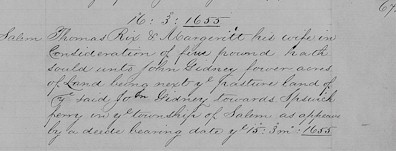 67
16 : 3 : 1655
Salem Thomas Rix & Margerit his wife in
Consideration of five pound hath
sould unto John Gidney fower acres
of Land being next ye pasture land of
ye said John Gidney towards Ipswich
ferry in ye township of Salem as appears
by a deede bearing date ye 15: 3 m: 1655